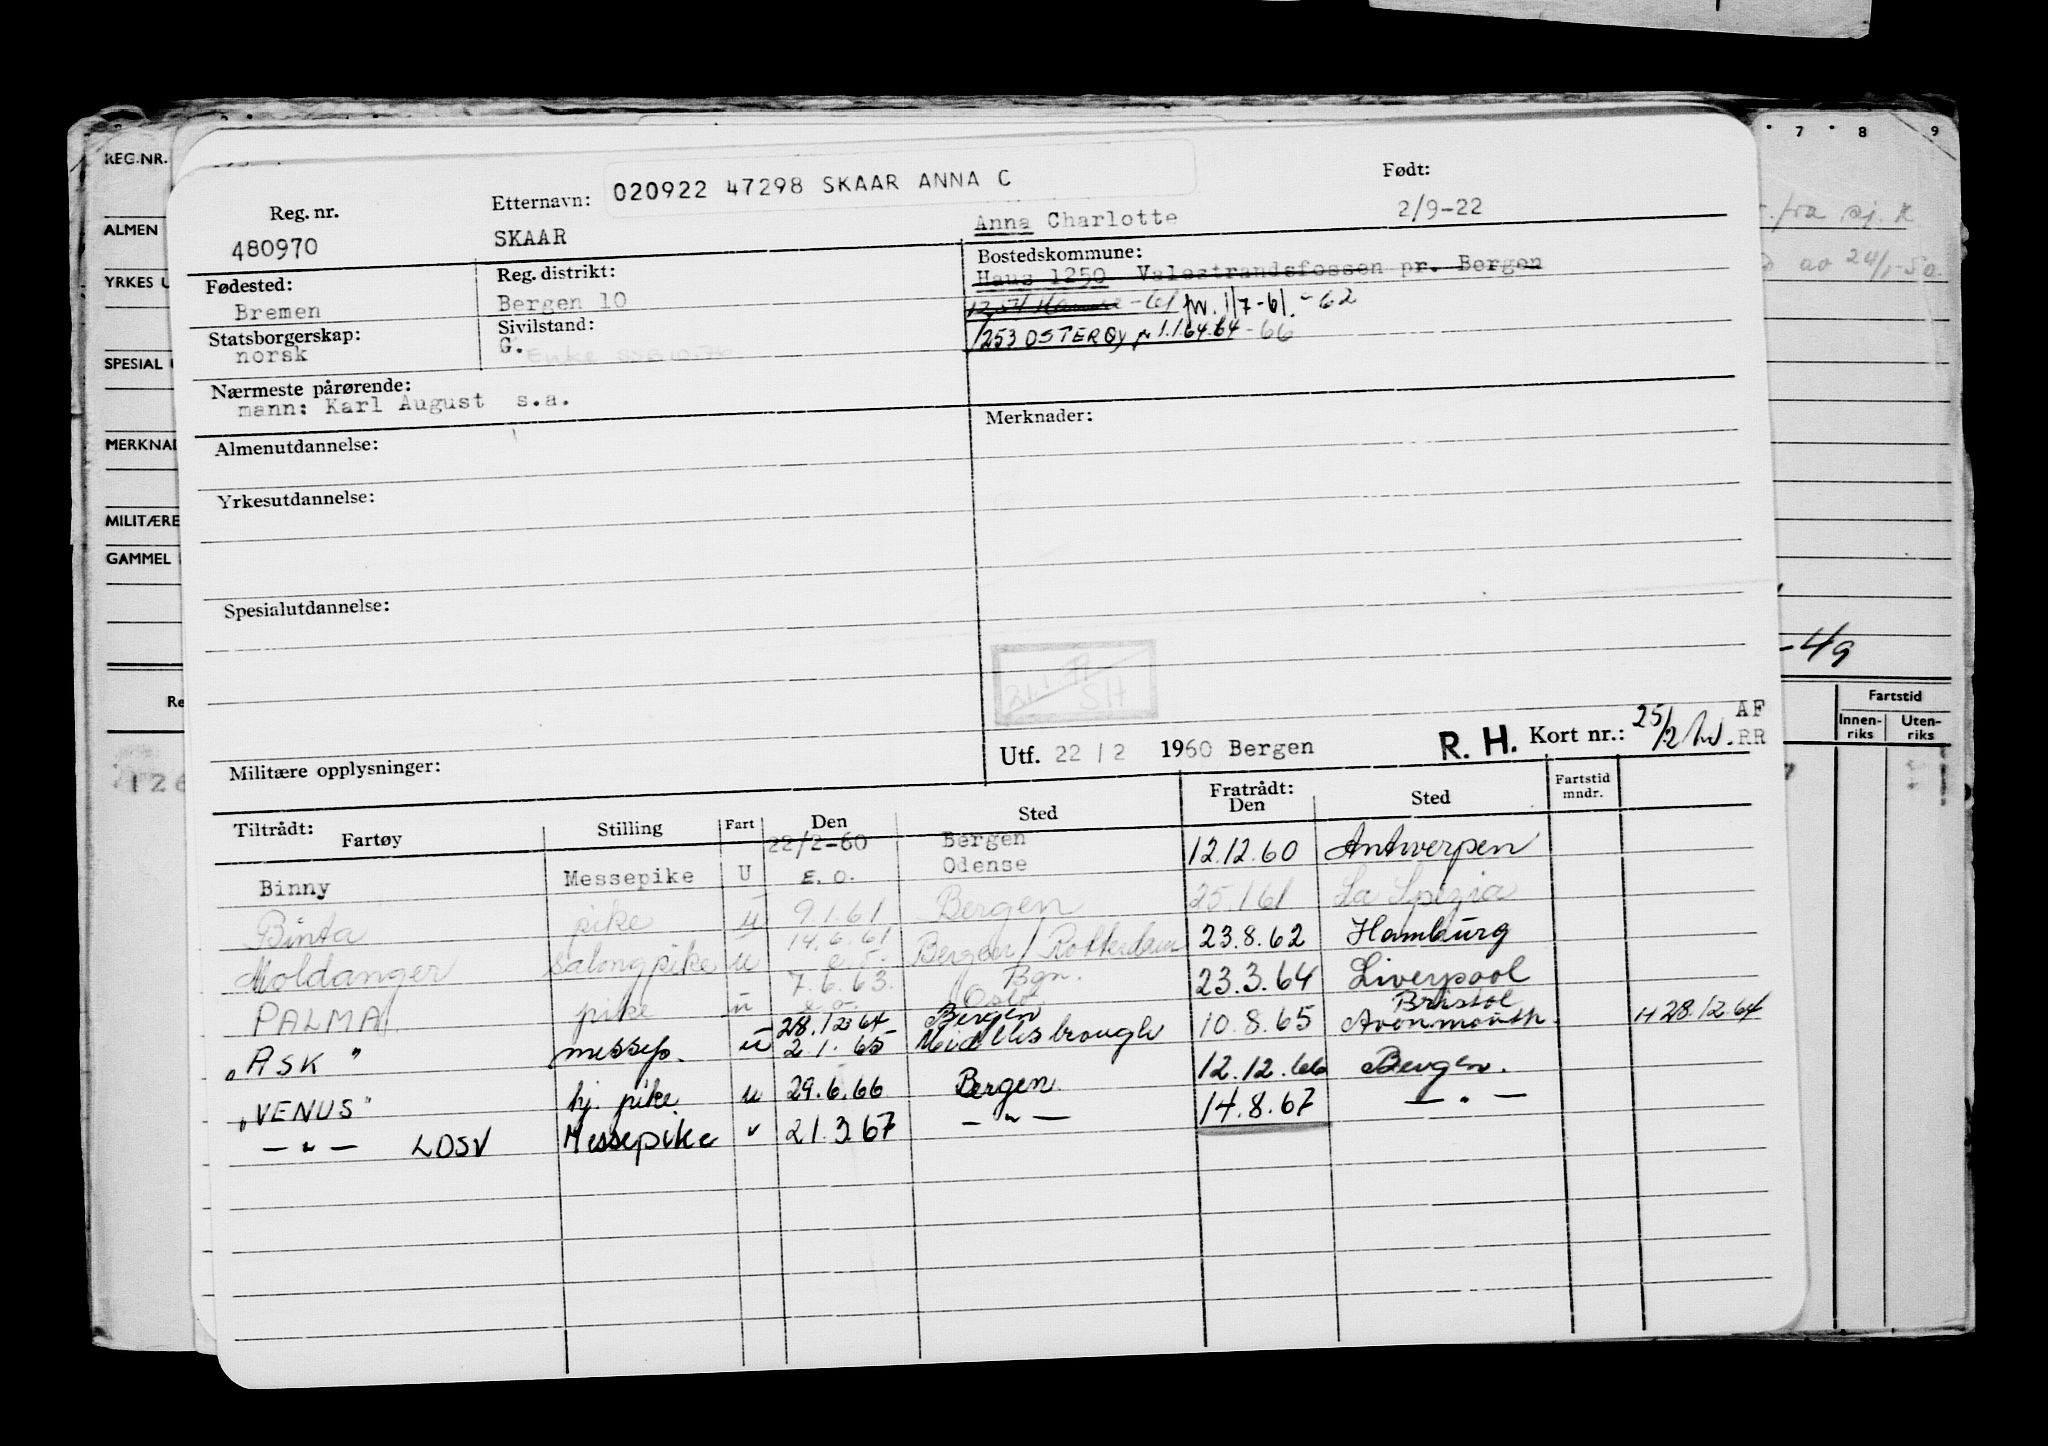 REG.NR.
ALMEN
YRKES U
SPESIAL U
MERKNAD
MILITÆRE
GAMMEL
Re
126
7 8 9
av 24/1-50.
-49
Fartstid
Innen-riks Uten-riks
Reg. nr. Etternavn: 020922 47298 SKAAR ANNA C Født:
480970 SKAAR Anna Charlotte 2/9-22
Fødested: Reg. distrikt: Bostedskommune:
Bremen Bergen 10 Haus 1250 Valestrandsfossen pr. Bergen
-61 pr. 1/7-61.-62
Statsborgerskap: Sivilstand:
norsk G. Enke
1253 OSTERØY pr 1.1.64.64-66
Nærmeste pårørende:
mann: Karl August s.a.
Almenutdannelse: Merknader:
Yrkesutdannelse:
Spesialutdannelse:
SH
Militære opplysninger: Utf. 22 / 2 1960 Bergen R. H. Kort nr.: 25/2 AF
RR
Tiltrådt: Fartøy Stilling Fart Den Sted Fratrådt: Den Sted Fartstid mndr.
22/2-60 Bergen
Binny Messepike U E.O. Odense 12.12.60 Antwerpen
Binta pike u 9.1.61 Bergen 25.1.61 La Spezia
Moldanger salongpike u 14.6.61 e.o. Bergen/Rotterdam 23.8.62 Hamburg
PALMA pike u 7.6.63. e.o. Bgn. Oslo 23.3.64 Liverpool
"ASK" messep. u 28.12.64 Bergen 2.1.65 Middlesbrough 10.8.65 Bristol Avonmouth. H 28.12.64
"VENUS" hj. pike u 29.6.66 Bergen 12.12.66 Bergen.
— " — LDSV Messepike v 21.3.67 — " — 14.8.67 — " —